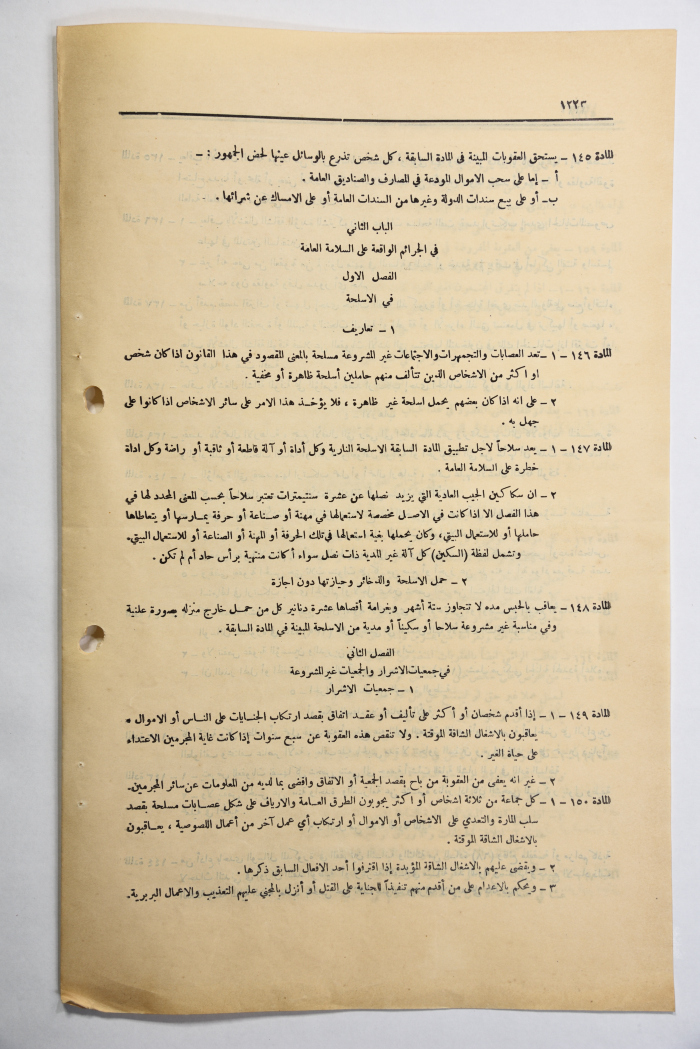 ١٢٢٣
المادة ١٤٥ – يستحق العقوبات المبينة فى المادة السابقة ، كل شخص تذرع بالوسائل عينها لحض الجمهور : –
أ – إما على سحب الاموال المودعة في المصارف والصناديق العامة .
ب– أو على بيع سندات الدولة وغيرها من السندات العامة أو على الامساك عن شرائها .
الباب الثاني
في الجرائم الواقعة على السلامة العامة
الفصل الاول
في الاسلحة
١ – تعاريف
المادة ١٤٦ – ١ – تعد العصابات والتجمهرات والاجتماعات غير المشروعة مسلحة بالمعنى المقصود في هذا القانون اذا كان شخص
او اكثر من الاشخاص الذين تتألف منهم حاملين أسلحة ظاهرة أو مخفية .
٢ – على انه اذا كان بعضهم يحمل اسلحة غير ظاهرة ، فلا يؤخذ هذا الامر على سائر الاشخاص اذا كانوا على
جهل به .
المادة ١٤٧ – ١ – يعد سلاحاً لاجل تطبيق المادة السابقة الاسلحة النارية وكل أداة أو آلة قاطعة أو ثاقبة أو راضة وكل اداة
خطرة على السلامة العامة .
٢ – ان سكاكين الجيب العادية التي يزيد نصلها عن عشرة سنتيمترات تعتبر سلاحاً بحسب المعنى المحدد لها في
هذا الفصل الا اذا كانت في الاصل مخصصة لاستعمالها في مهنة أو صناعة أو حرفة يمارسها أو يتعاطاها
حاملها أو للاستعمال البيتي، وكان يحملها بغية استعمالها في تلك الحرفة أو المهنة أو الصناعة أو للاستعمال البيتي.
وتشمل لفظة (السكين) كل آلة غير المدية ذات نصل سواء أكانت منتهية برأس حاد أم لم تكن .
٢ – حمل الاسلحة والذخائر وحيازتها دون اجازة
المادة ١٤٨ – يعاقب بالحبس مده لا تتجاوز ستة أشهر وبغرامة أقصاها عشرة دنانير كل من حمل خارج منزله بصورة علنية
وفي مناسبة غير مشروعة سلاحا أو سكيناً أو مدية من الاسلحة المبينة في المادة السابقة .
الفصل الثاني
في جمعيات الاشرار والجمعيات غير المشروعة
١ – جمعيات الاشرار
المادة ١٤٩ – ١ – إذا أقدم شخصان أو أكثر على تأليف أو عقد اتفاق بقصد ارتكاب الجنايات على الناس أو الاموال .
يعاقبون بالاشغال الشاقة الموقتة . ولا تنقص هذه العقوبة عن سبع سنوات إذا كانت غاية المجرمين الاعتداء
على حياة الغير .
٢ – غير انه يعفى من العقوبة من باح بقصد الجمعية أو الاتفاق وافضى بما لديه من المعلومات عن سائر المجرمين.
المادة ١٥٠ – ١ – كل جماعة من ثلاثة اشخاص أو اكثر يجوبون الطرق العامة والارياف على شكل عصابات مسلحة بقصد
سلب المارة والتعدي على الاشخاص أو الاموال أو ارتكاب أي عمل آخر من أعمال اللصوصية ، يعاقبون
بالاشغال الشاقة الموقتة .
٢ – ويقضى عليهم بالاشغال الشاقة المؤبدة إذا اقترفوا أحد الافعال السابق ذكرها .
٣ – ويحكم بالاعدام على من أقدم منهم تنفيذاً للجناية على القتل أو أنزل بالمجني عليهم التعذيب والاعمال البربرية.